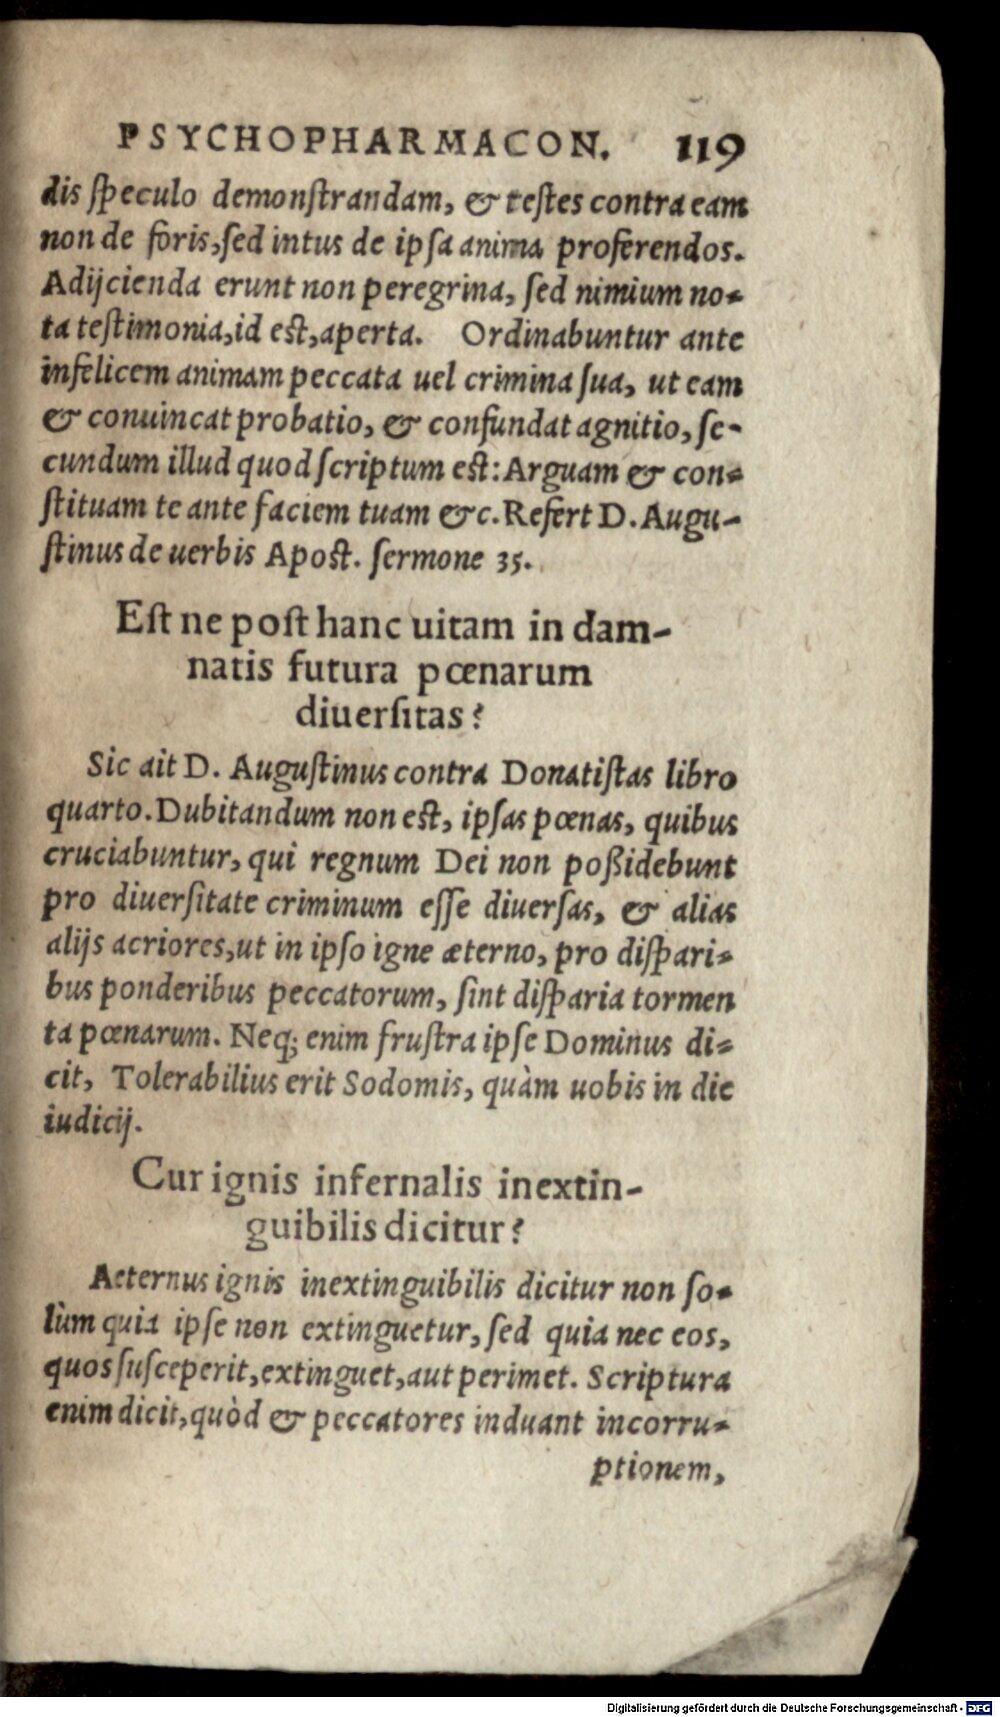 PSYCHOPHARMACON. 119
dis ſpeculo demonſtrandam, & teſtes contra eam
non de foris, ſed intus de ipſa anima proferendos.
Adijcienda erunt non peregrina, ſed nimium no-
ta teſtimonia, id eſt, aperta. Ordinabuntur ante
infelicem animam peccata uel crimina ſua, ut eam
& conuincat probatio, & confundat agnitio, ſe-
cundum illud quod ſcriptum eſt: Arguam & con-
ſtituam te ante faciem tuam &c. Refert D. Augu-
ſtinus de uerbis Apoſt. ſermone 35.
Eſt ne poſt hanc uitam in dam-
natis futura pœnarum
diuerſitas?
Sic ait D. Auguſtinus contra Donatiſtas libro
quarto. Dubitandum non eſt, ipſas pœnas, quibus
cruciabuntur, qui regnum Dei non poßidebunt
pro diuerſitate criminum eſſe diuerſas, & alias
alijs acriores, ut in ipſo igne æterno, pro diſpari-
bus ponderibus peccatorum, ſint diſparia tormen
ta pœnarum. Neq; enim fruſtra ipſe Dominus di-
cit, Tolerabilius erit Sodomis, quàm uobis in die
iudicij.
Cur ignis infernalis inextin-
guibilis dicitur?
Aeternus ignis inextinguibilis dicitur non ſo-
lùm quia ipſe non extinguetur, ſed quia nec eos,
quos ſuſceperit, extinguet, aut perimet. Scriptura
enim dicit, quòd & peccatores induant incorru-
ptionem,
Digitalisierung gefördert durch die Deutsche Forschungsgemeinschaft - DFG